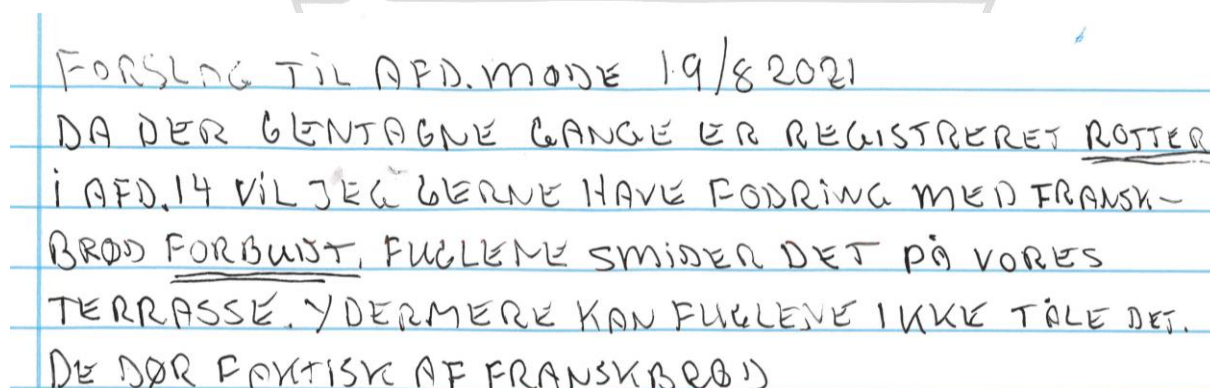 FORSLAG TIL AFD. MØDE 19/8 2021
DA DER GENTAGNE GANGE ER REGISTRERET ROTTER
I AFD. 14 VIL JEG GERNE HAVE FODRING MED FRANSK-
BRØD FORBUDT. FUGLENE SMIDER DET PÅ VORES
TERRASSE. YDERMERE KAN FUGLENE IKKE TÅLE DET.
DE DØR FAKTISK AF FRANSKBRØD